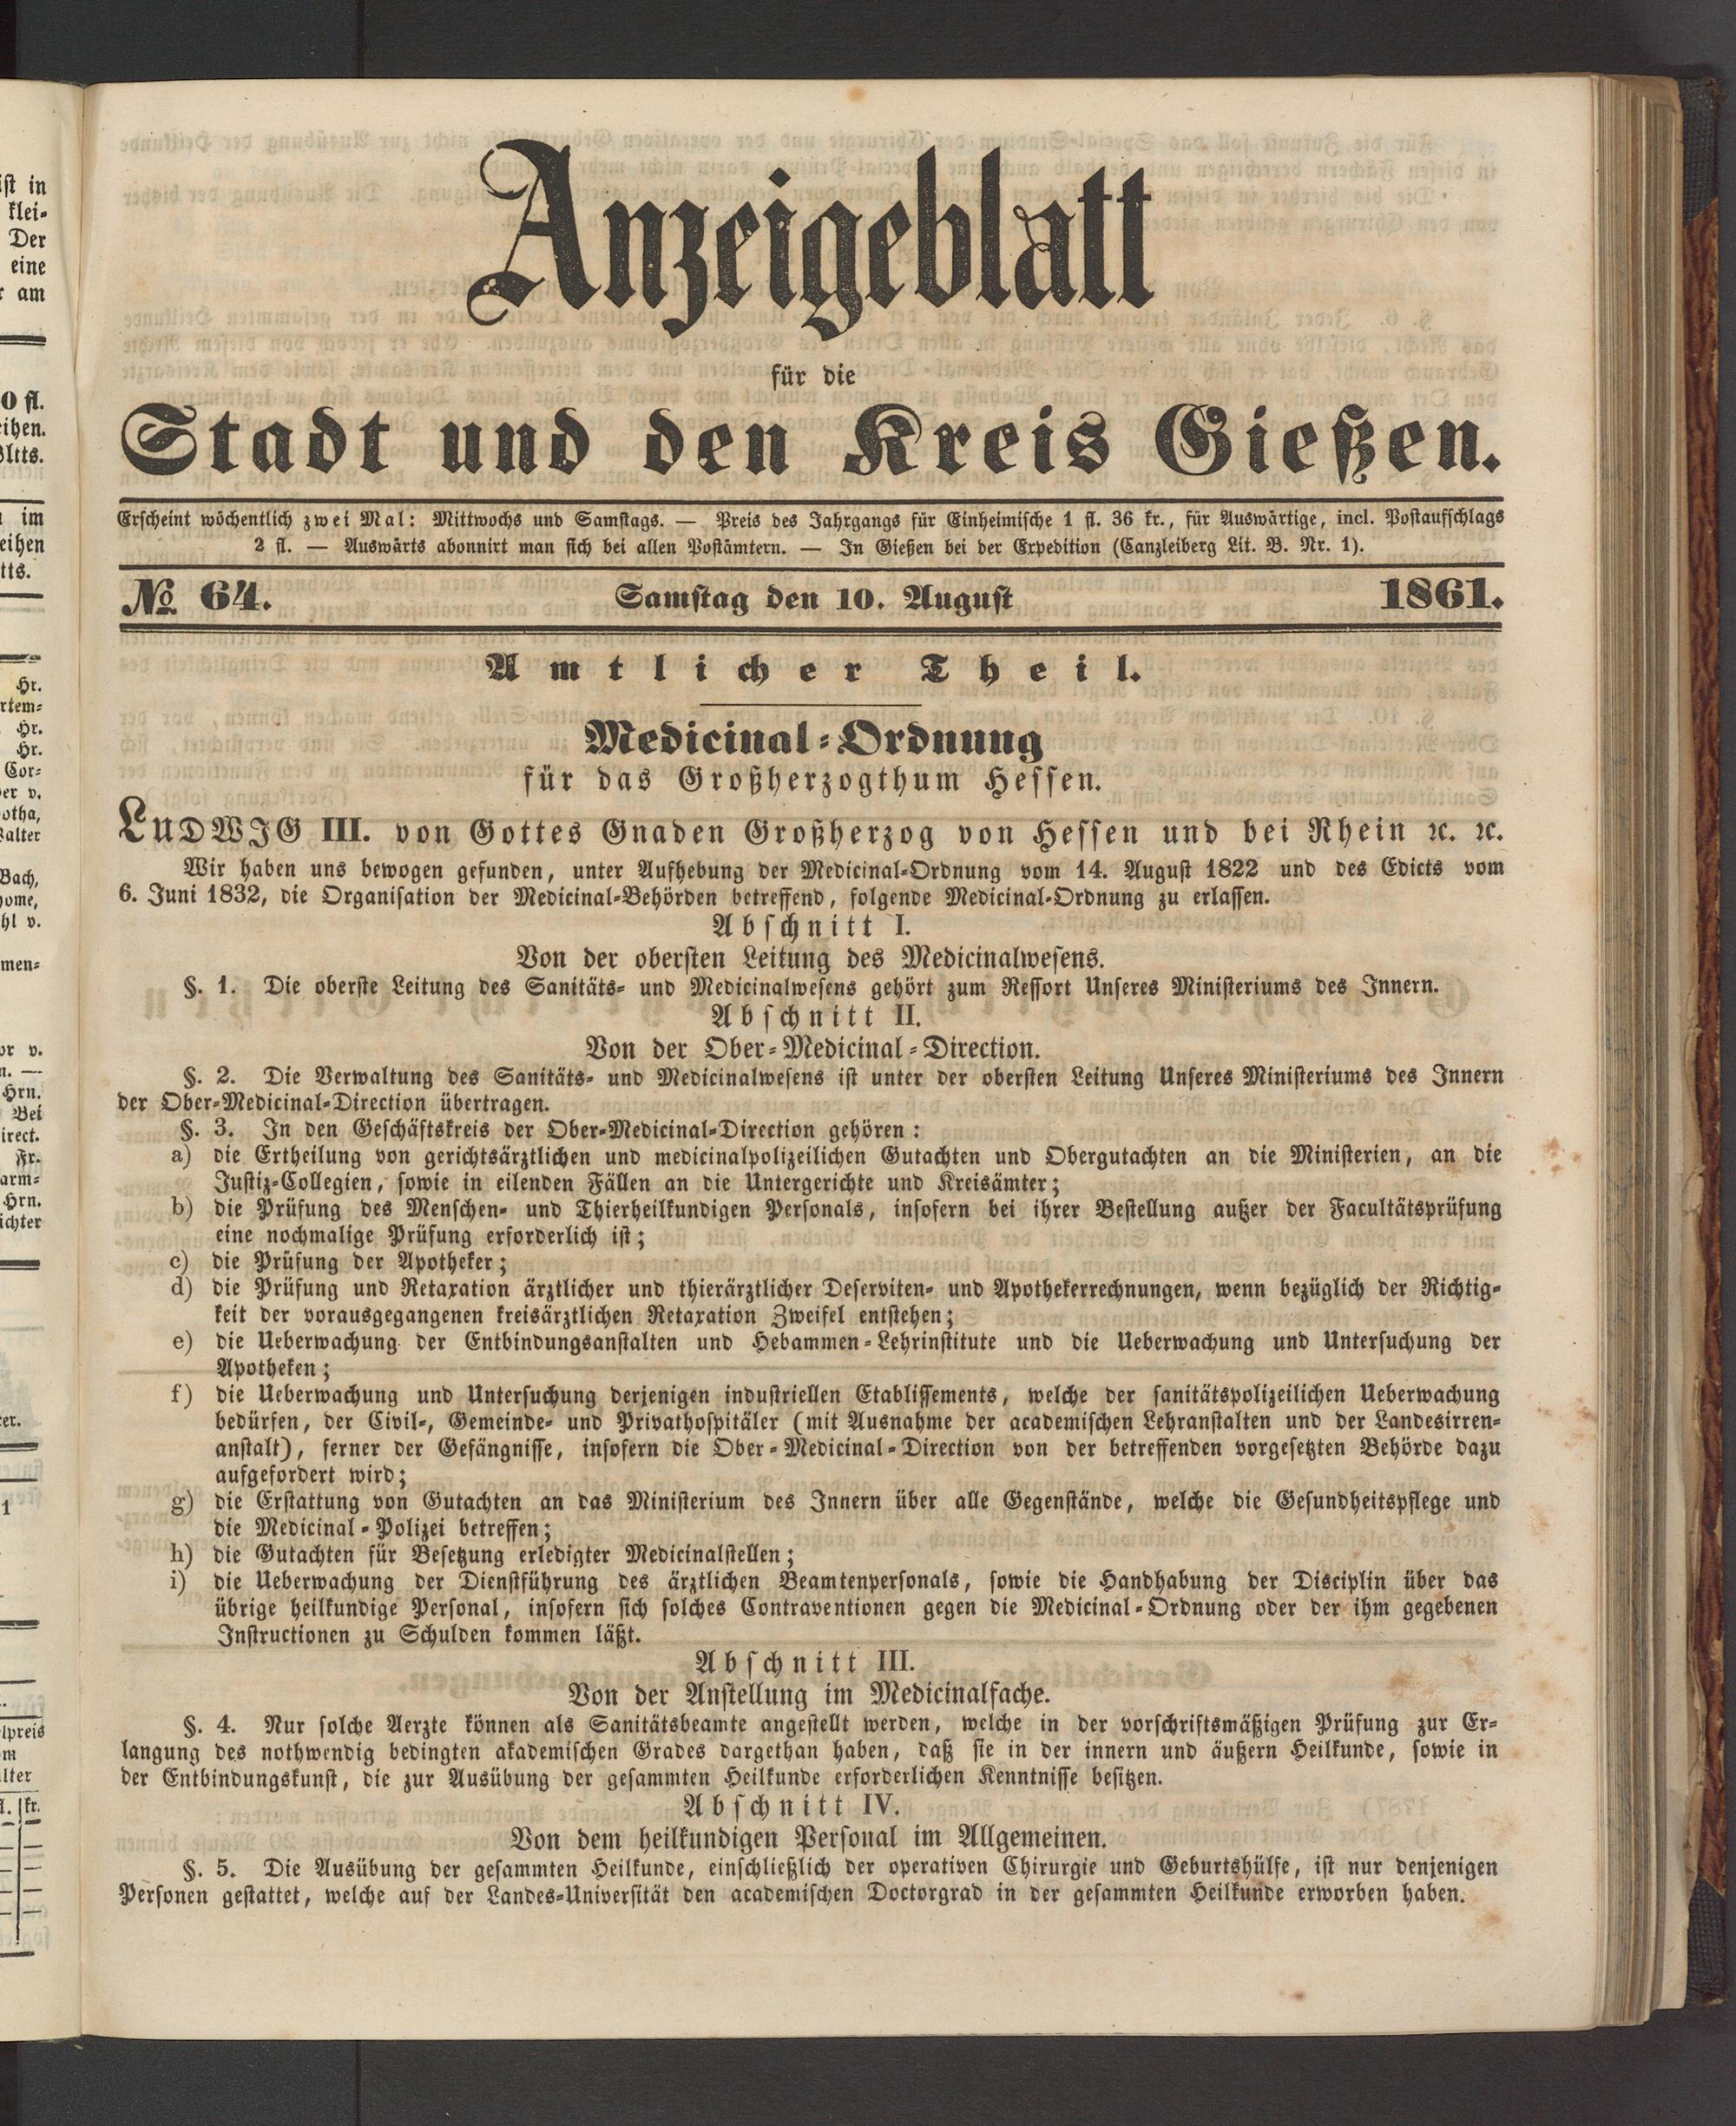 ist in
klei-
Der
eine
am
0 fl.
im
Hr.
Hr.
Hr.
Cor-
Bach,
men-
Hrn.
Bei
Fr.
Hrn.
1
Anzeigeblatt
für die
Stadt und den Kreis Gießen.
Erscheint wöchentlich zwei Mal: Mittwochs und Samstags. — Preis des Jahrgangs für Einheimische 1 fl. 36 kr., für Auswärtige, incl. Postaufschlags
2 fl. — Auswärts abonnirt man sich bei allen Postämtern. — In Gießen bei der Expedition (Canzleiberg Lit. B. Nr. 1).
№ 64. Samstag den 10. August 1861.
Amtlicher Theil.
Medicinal-Ordnung
für das Großherzogthum Hessen.
LUDWIG III. von Gottes Gnaden Großherzog von Hessen und bei Rhein ꝛc. ꝛc.
Wir haben uns bewogen gefunden, unter Aufhebung der Medicinal-Ordnung vom 14. August 1822 und des Edicts vom
6. Juni 1832, die Organisation der Medicinal-Behörden betreffend, folgende Medicinal-Ordnung zu erlassen.
Abschnitt I.
Von der obersten Leitung des Medicinalwesens.
§. 1. Die oberste Leitung des Sanitäts- und Medicinalwesens gehört zum Ressort Unseres Ministeriums des Innern.
Abschnitt II.
Von der Ober-Medicinal-Direction.
§. 2. Die Verwaltung des Sanitäts- und Medicinalwesens ist unter der obersten Leitung Unseres Ministeriums des Innern
der Ober-Medicinal-Direction übertragen.
§. 3. In den Geschäftskreis der Ober-Medicinal-Direction gehören:
a) die Ertheilung von gerichtsärztlichen und medicinalpolizeilichen Gutachten und Obergutachten an die Ministerien, an die
Justiz-Collegien, sowie in eilenden Fällen an die Untergerichte und Kreisämter;
b) die Prüfung des Menschen- und Thierheilkundigen Personals, insofern bei ihrer Bestellung außer der Facultätsprüfung
eine nochmalige Prüfung erforderlich ist;
c) die Prüfung der Apotheker;
d) die Prüfung und Retaxation ärztlicher und thierärztlicher Deserviten- und Apothekerrechnungen, wenn bezüglich der Richtig-
keit der vorausgegangenen kreisärztlichen Retaxation Zweifel entstehen;
e) die Ueberwachung der Entbindungsanstalten und Hebammen-Lehrinstitute und die Ueberwachung und Untersuchung der
Apotheken;
f) die Ueberwachung und Untersuchung derjenigen industriellen Etablissements, welche der sanitätspolizeilichen Ueberwachung
bedürfen, der Civil-, Gemeinde- und Privathospitäler (mit Ausnahme der academischen Lehranstalten und der Landesirren-
anstalt), ferner der Gefängnisse, insofern die Ober-Medicinal-Direction von der betreffenden vorgesetzten Behörde dazu
aufgefordert wird;
g) die Erstattung von Gutachten an das Ministerium des Innern über alle Gegenstände, welche die Gesundheitspflege und
die Medicinal-Polizei betreffen;
h) die Gutachten für Besetzung erledigter Medicinalstellen;
i) die Ueberwachung der Dienstführung des ärztlichen Beamtenpersonals, sowie die Handhabung der Disciplin über das
übrige heilkundige Personal, insofern sich solches Contraventionen gegen die Medicinal-Ordnung oder der ihm gegebenen
Instructionen zu Schulden kommen läßt.
Abschnitt III.
Von der Anstellung im Medicinalfache.
§. 4. Nur solche Aerzte können als Sanitätsbeamte angestellt werden, welche in der vorschriftsmäßigen Prüfung zur Er-
langung des nothwendig bedingten akademischen Grades dargethan haben, daß sie in der innern und äußern Heilkunde, sowie in
der Entbindungskunst, die zur Ausübung der gesammten Heilkunde erforderlichen Kenntnisse besitzen.
Abschnitt IV.
Von dem heilkundigen Personal im Allgemeinen.
§. 5. Die Ausübung der gesammten Heilkunde, einschließlich der operativen Chirurgie und Geburtshülfe, ist nur denjenigen
Personen gestattet, welche auf der Landes-Universität den academischen Doctorgrad in der gesammten Heilkunde erworben haben.